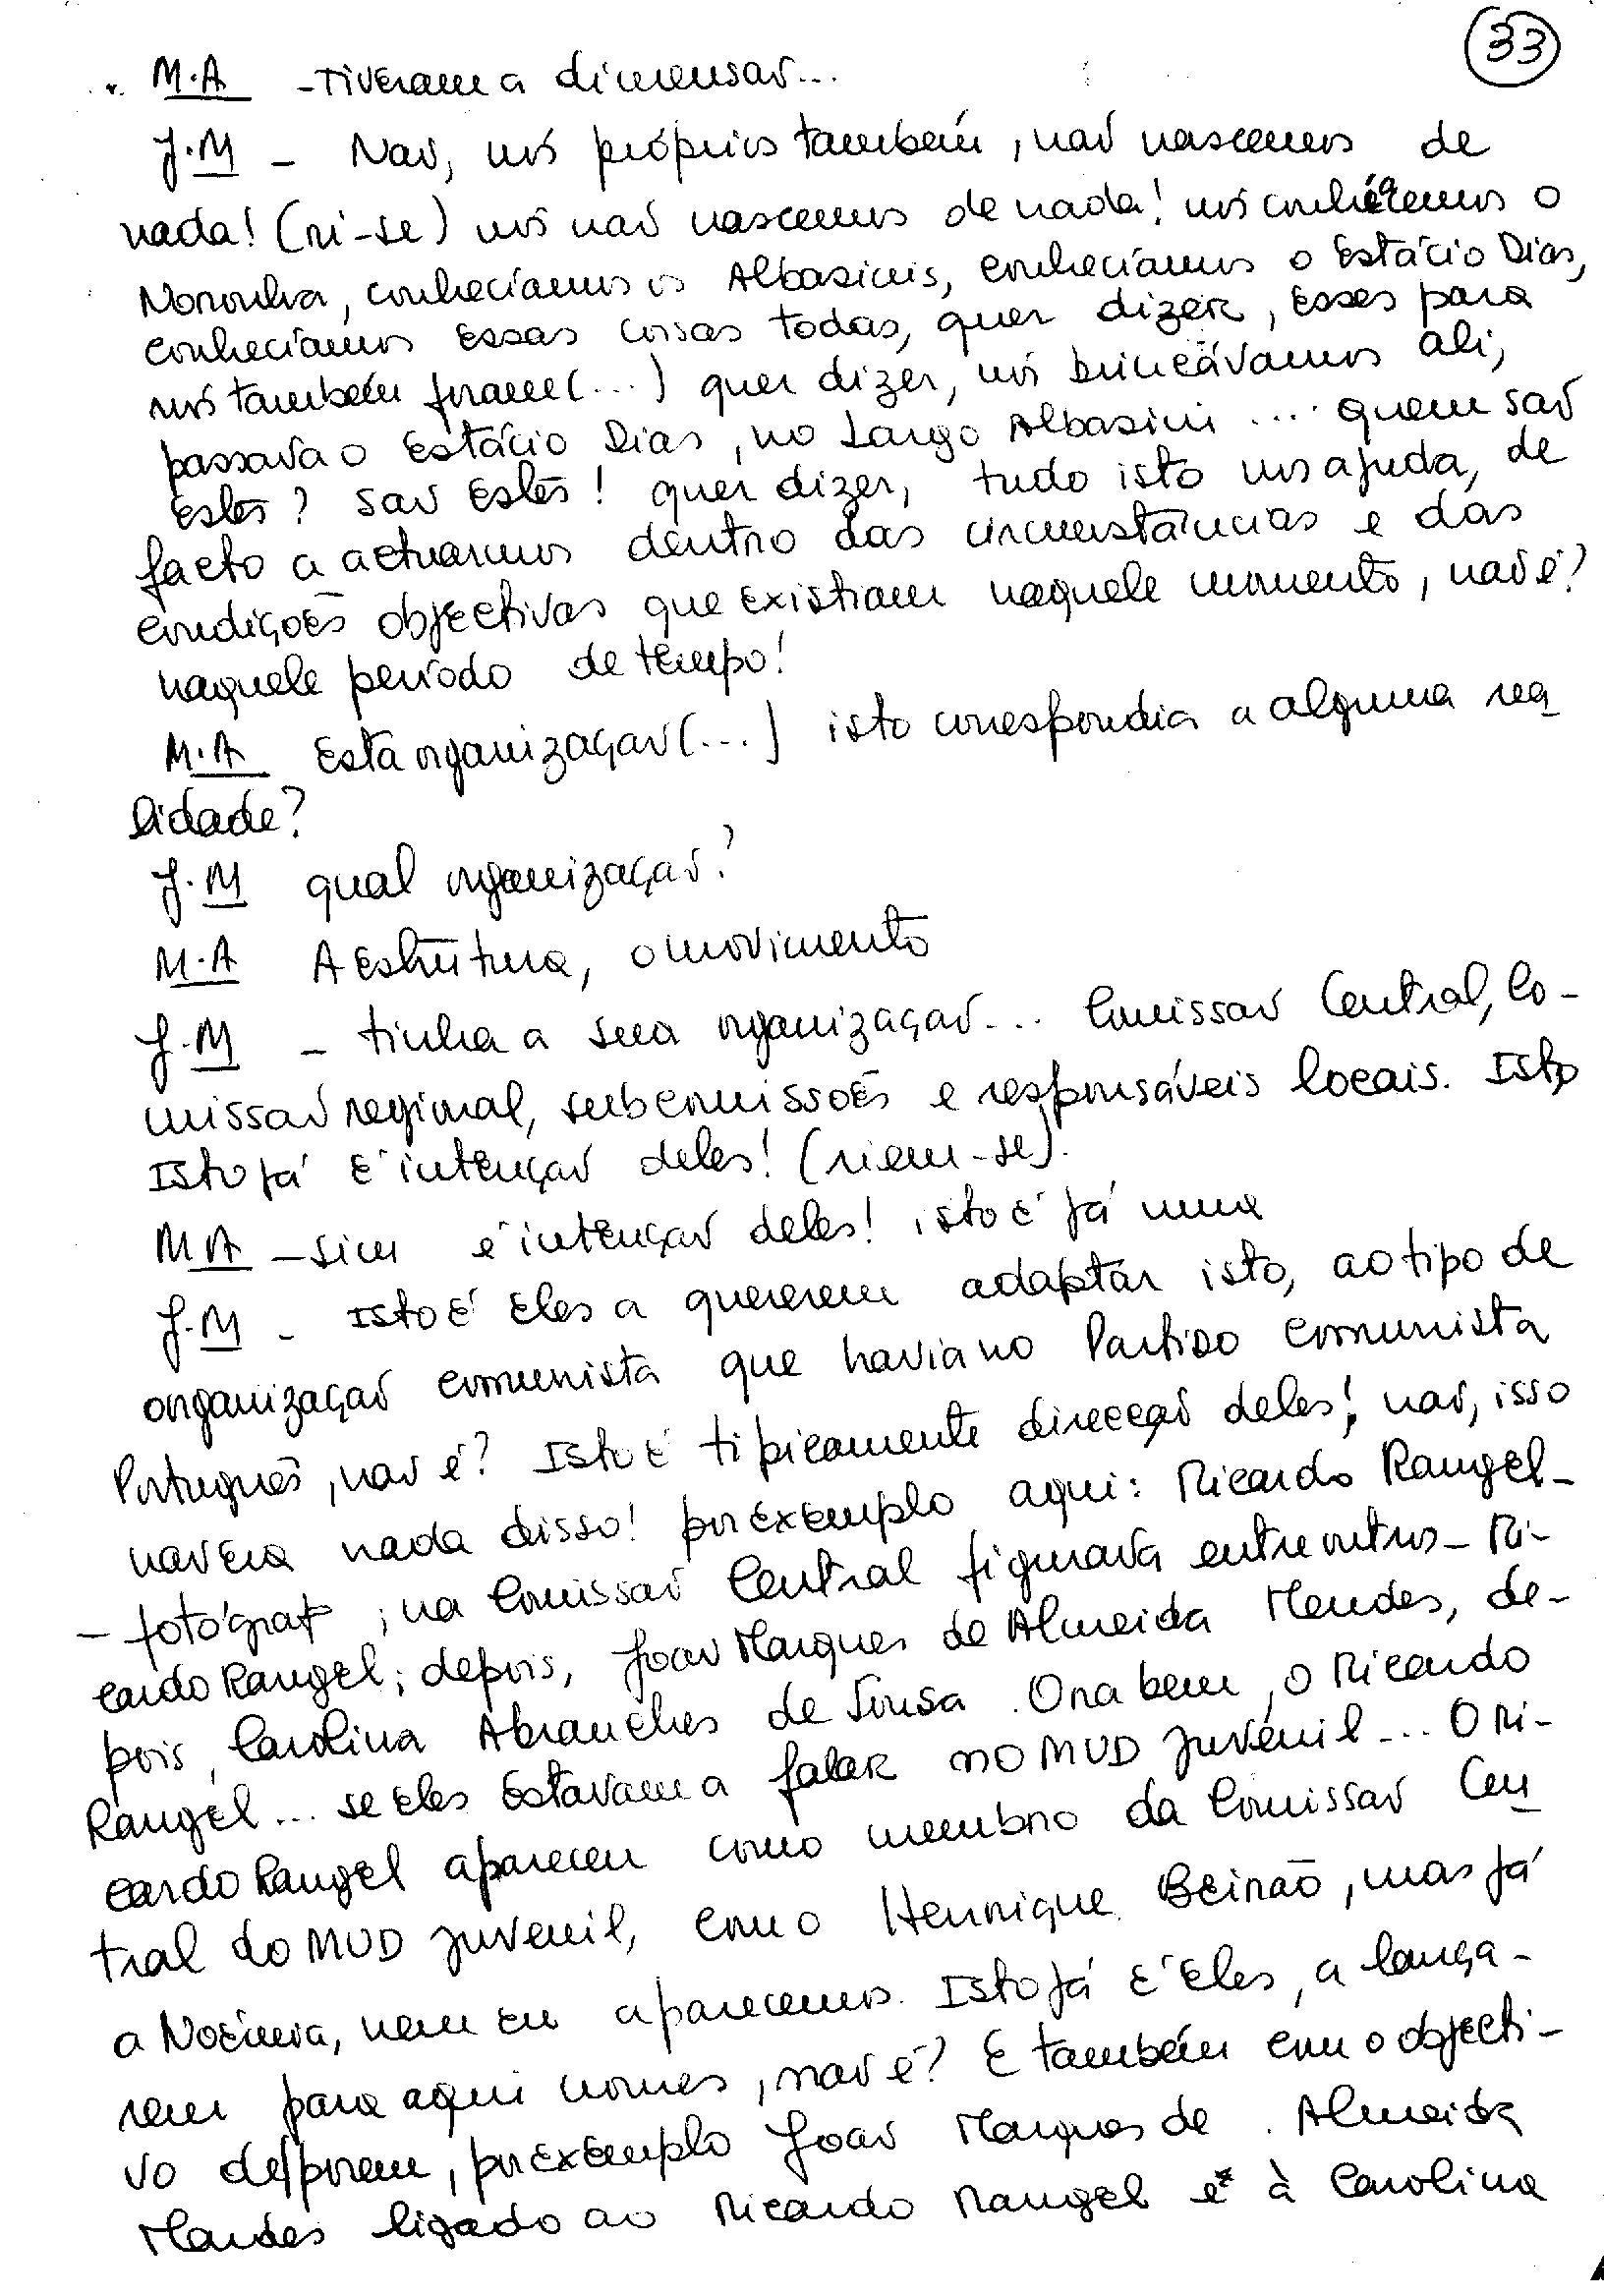 33
M.A - Tiveram a dimensão...
J.M - Não, nós próprios também, não nascemos de
nada! (ri-se) nós não nascemos de nada! nós conhecemos o
Noronha, conhecíamos os Albasinis, conhecíamos o Estácio Dias,
conhecíamos essas coisas todas, quer dizer, esses para
nós também foram (...) quer dizer, nós brincávamos ali,
passava o Estácio Dias, no Largo Albasini ... quem são
estes? são estes! quer dizer, tudo isto nos ajuda, de
facto a actuarmos dentro das circunstâncias e das
condições objectivas que existiam naquele momento, não é?
naquele período de tempo!
M.A Esta organização (...) isto correspondia a alguma rea
lidade?
J.M qual organização?
M.A A Estrutura, o movimento
J.M - tinha a sua organização... Comissão Central, Co-
missão regional, subcomissões e responsáveis locais. Isto
Isto já é intenção deles! (riem-se).
M.A - sim é intenção deles! isto é já uma
J.M - Isto é eles a quererem adaptar isto, ao tipo de
organização comunista que havia no Partido comunista
Português, não é? Isto é tipicamente direcção deles! não, isso
não era nada disso! por exemplo aqui: Ricardo Rangel-
- fotógrafo, na Comissão Central figurava entre outros - Ri-
cardo Rangel; depois, João Marques de Almeida Mendes, de-
pois, Carolina Abranches de Sousa. Ora bem, o Ricardo
Rangel... se eles estavam a falar no MUD juvenil... O Ri-
cardo Rangel apareceu como membro da Comissão Cen
tral do MUD juvenil, como Henrique Beirão, mas já
a Noémia, nem eu aparecemos. Isto já é eles, a lança-
rem para aqui nomes, não é? E também com o objecti-
vo de porem, por exemplo João Marques de Almeida
Mendes ligado ao Ricardo Rangel e à Carolina